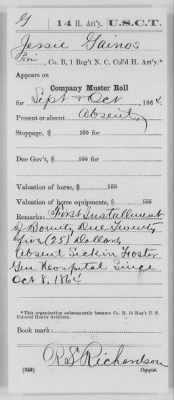 G | 14 H. Art'y. | U.S.C.T.
Jessie Gaines
Pvt., Co. B, 1 Reg't N. C. Col'd H. Art'y.*
Appears on
Company Muster Roll
for Sept & Oct, 1864.
Present or absent Absent
Stoppage, $ 100 for
Due Gov't, $ 100 for
Valuation of horse, $ 100
Valuation of horse equipments, $ 100
Remarks: First Installment
of Bounty Due Twenty
five (25) Dollars
Absent Sick in Foster
Gen Hospital Since
Oct 8, 1864
*This organization subsequently became Co. B, 14 Reg't U. S.
Colored Heavy Artillery.
Book mark:
R S Richardson
(358) Copyist.